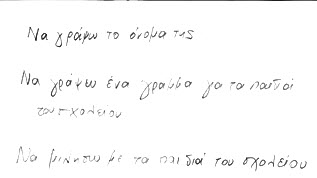 Να γράψω το όνομα της
Να γράψω ένα γραμμα γα τα παιδιά
του σχολειου
Να μιλησω με τα παιδιά του σχολείου